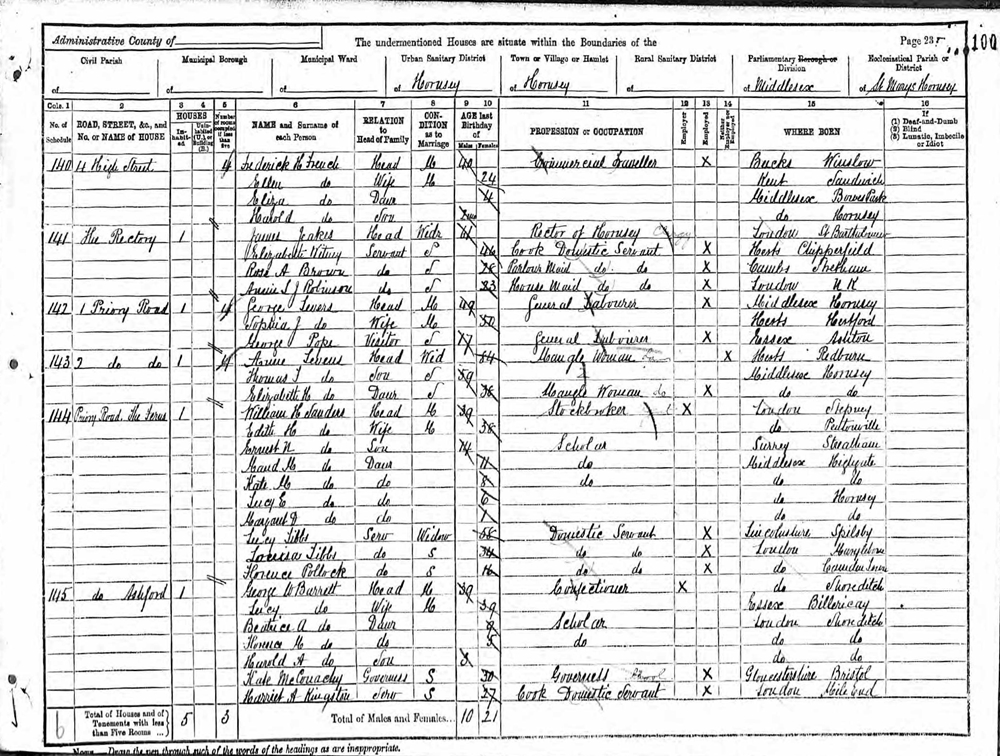 Administrative County of
The undermentioned Houses are situate within the Boundaries of the
Page 23
100
Civil Parish Municipal Borough Municipal Ward Urban Sanitary District Town or Village or Hamlet Rural Sanitary District Parliamentary Borough or Division Ecclesiastical Parish or District
of of of of Hornsey of Hornsey of of Middlesex of St Marys Hornsey
Cols. 1 2 3 4 5 6 7 8 9 10 11 12 13 14 15 16
No. of Schedule ROAD, STREET, &c., and No. or NAME of HOUSE HOUSES Inhabited Uninhabited (U.) or Building (B.) Number of rooms occupied if less than five NAME and Surname of each Person RELATION to Head of Family CONDITION as to Marriage AGE last Birthday of Males Females PROFESSION or OCCUPATION Employer Employed Neither Employer nor Employed WHERE BORN If (1) Deaf-and-Dumb (2) Blind (3) Lunatic, Imbecile or Idiot
140 4 High Street 4 Frederick H. French Head M 40 Commercial Traveller X Bucks Winslow
Ellen do Wife M 24 Kent Sandwich
Eliza do Daur 4 Middlesex Bowes Park
Harold do Son do Hornsey
141 The Rectory 1 James Jakes Head Widr 61 Rector of Hornsey London St Bartholomew
Elizabeth Witney Servant S 46 Cook Domestic Servant X Herts Chipperfield
Rose A Brown do S 28 Parlour Maid do do X Cambs
Annie S J Robinson do S 23 House Maid do do X London N K
142 1 Priory Road 1 4 George Severs Head M 49 General Labourer X Middlesex Hornsey
Sophia J do Wife M 50 Herts Hertford
George Pope Visitor S 77 General Labourer X Essex
143 2 do do 1 4 Severs Head Wid 84 Mangle Woman X Herts Redburn
Thomas do Son S 59 Middlesex Hornsey
Elizabeth H do Daur S 38 Mangle Woman do X do do
144 Priory Road, The Ferns 1 William H Sanders Head M 39 Stockbroker X London Stepney
Edith H do Wife M 38 do Pentonville
Ernest N do Son 14 Scholar Surrey Streatham
Maud M do Daur 11 do Middlesex Highgate
Kate M do do 8 do do do
Lucy E do do 6 do Hornsey
Margaret D do do 1 do do
Lucy Tibbs Serv Widow 58 Domestic Servant X Lincolnshire Spilsby
Louisa Tibbs do S 34 do do X London Marylebone
Florence Pollock do S 16 do do X do Camden Town
145 do Ashford 1 George W Barrett Head M 39 Confectioner X do Shoreditch
Lucy do Wife M 39 Essex Billericay
Beatrice A do Daur 8 Scholar London Shoreditch
Florence M do do 5 do do do
Harold A do Son 3 do do
Kate McConachy Governess S 30 Governess School X Gloucestershire Bristol
Harriet A Kingston Serv S 27 Cook Domestic Servant X London Mile End
6 Total of Houses and of Tenements with less than Five Rooms ... 5 3 Total of Males and Females... 10 21
NOTE.—Draw the pen through such of the words of the headings as are inappropriate.